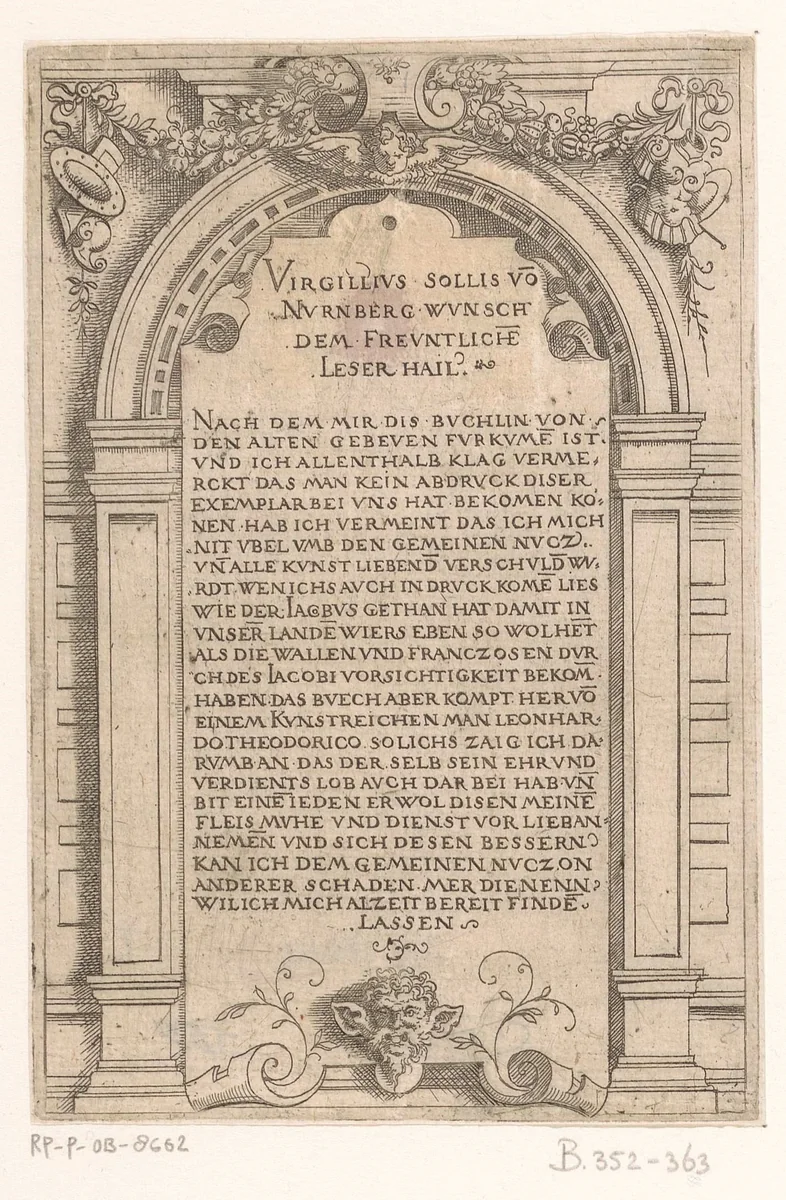 VIRGILLIVS · SOLLIS VŌ
NVRNBERG · WVNSCH
DEM · FREVNTLICHĒ
LESER HAIL.
NACH DEM · MIR · DIS · BVCHLIN · VON ·
DEN ALTEN GEBEVEN FVRKVMĒ IST.
VND ICH ALLENTHALB KLAG VERME,
RCKT DAS MAN KEIN ABDRVCK DISER
EXEMPLAR BEI VNS HAT · BEKOMEN KO:
NEN · HAB ICH VERMEINT DAS ICH MICH
NIT VBEL VMB DEN GEMEINEN NVCZ.
VN̄ ALLE KVNST LIEBEND̄ VERSCHVLD̄ WV:
RDT. WEN ICHS AVCH IN DRVCK KOMĒ LIES
WIE DER. IACOBVS GETHAN HAT DAMIT IN
VNSER̄ LANDĒ WIERS EBEN SO WOL HET̄
ALS DIE WALLEN VND FRANCZOSEN DVR
CH DES IACOBI VORSICHTIGKEIT BEKOM̄.
HABEN. DAS BVECH ABER KOMPT. HER VŌ
EINEM KVNSTREICHEN MAN LEONHAR:
DO THEODORICO. SOLICHS ZAIG ICH DA:
RVMB AN. DAS DER SELB SEIN EHR VND
VERDIENTS LOB AVCH DAR BEI HAB. VN̄
BIT EINĒ IEDEN ER WOL DISEN MEINĒ
FLEIS MVHE VND DIENST VOR LIEB AN:
NEMĒN VND SICH DESEN BESSERN
KAN ICH DEM GEMEINEN NVCZ. ON
ANDERER SCHADEN. MER DIENENN
WIL ICH MICH ALZEIT BEREIT FINDĒ
LASSEN
RP-P-OB-8662
B. 352-363